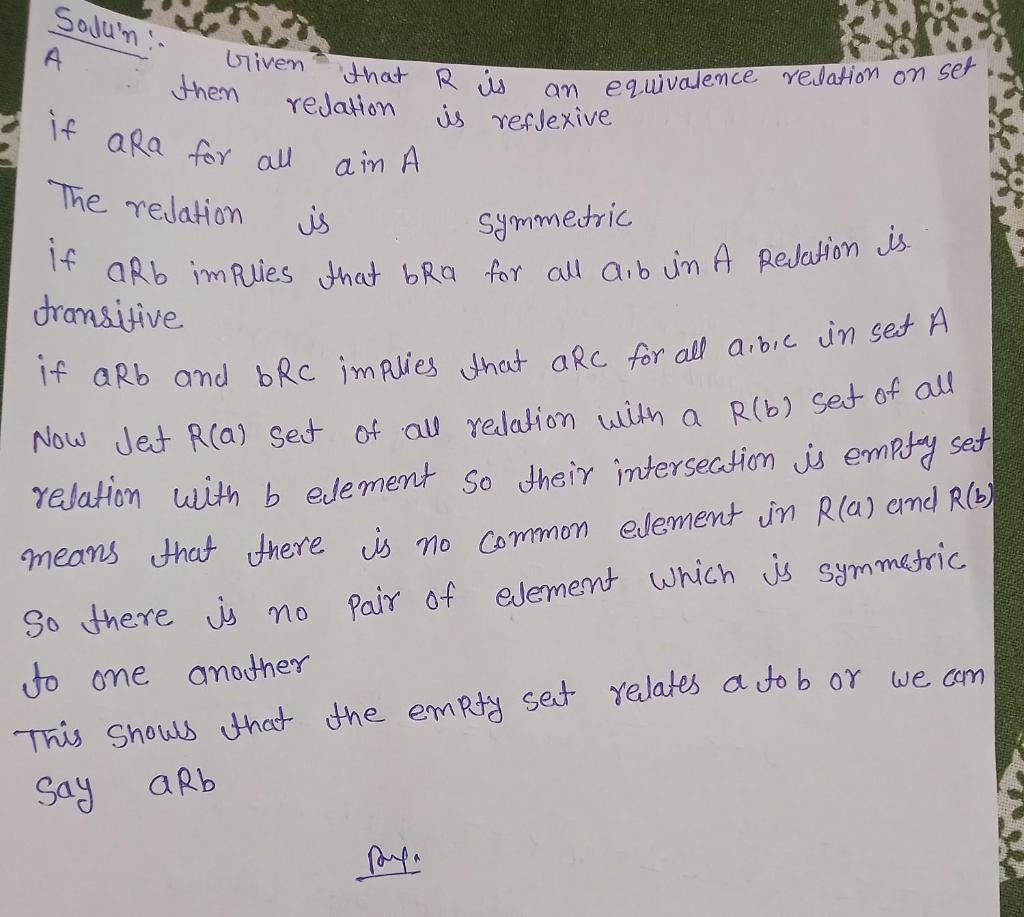 Solu'n :-
Given that R is an equivalence relation on set
A then relation is reflexive
if aRa for all a in A
The relation is symmetric
if aRb implies that bRa for all a,b in A Relation is
transitive
if aRb and bRc implies that aRc for all a,b,c in set A
Now let R(a) set of all relation with a R(b) set of all
relation with b element so their intersection is empty set
means that there is no common element in R(a) and R(b)
So there is no Pair of element which is symmetric
to one another
This Shows that the empty set relates a to b or we can
Say aRb